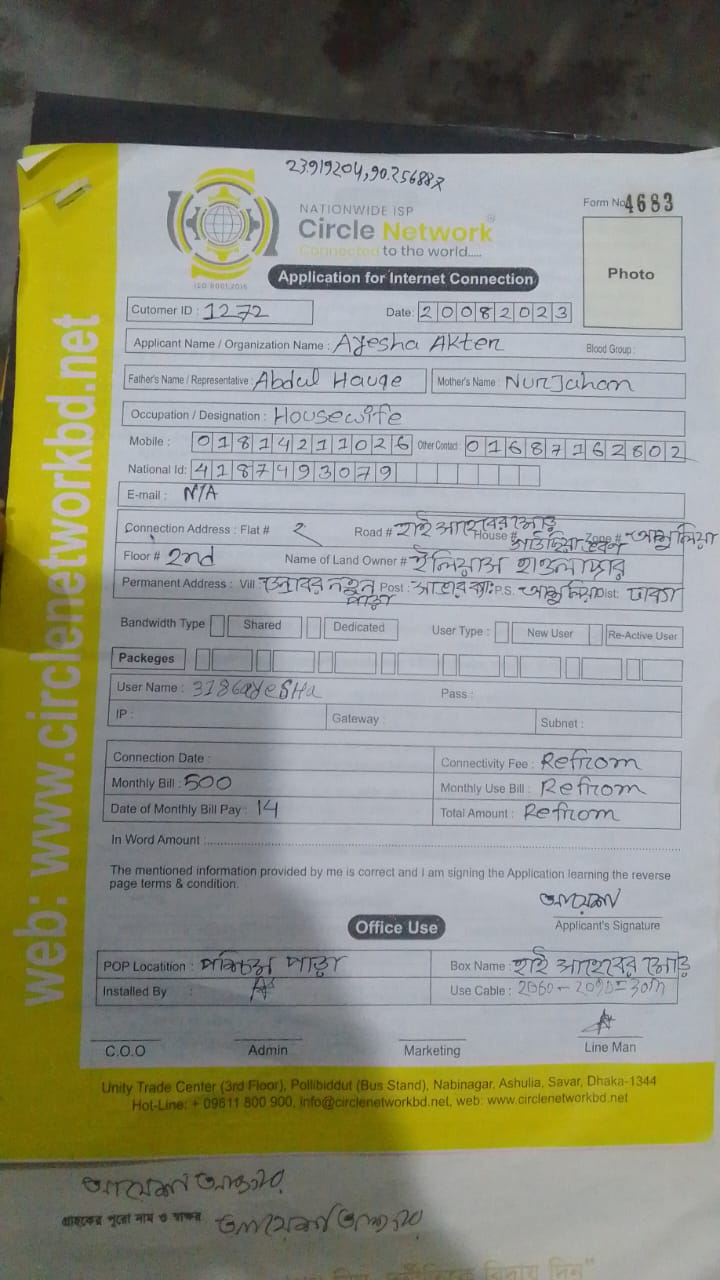 23.919204,90.256887
Form No 4683
NATIONWIDE ISP
Circle Network®
Connected to the world.....
ISO 9001:2015
Photo
Application for Internet Connection
Cutomer ID : 1272 Date: 20082023
Applicant Name / Organization Name : Ayesha Akter Blood Group :
Father's Name / Representative : Abdul Hauqe Mother's Name : Nurjahan
Occupation / Designation : Housewife
Mobile : 01814211026 Other Contact : 01687162802
National Id: 4187493079
E-mail : N/A
Connection Address : Flat # 2 Road # হাই সাহেবের মোড় House # Zone # আশুলিয়া
Floor # 2nd Name of Land Owner # ইলিয়াস হাওলাদার
Permanent Address : Vill নতুন পাড়া Post : P.S. আশুলিয়া Dist: ঢাকা
Bandwidth Type Shared Dedicated User Type : New User Re-Active User
Packeges
User Name : 3186ayeSHa Pass :
IP : Gateway : Subnet :
Connection Date : Connectivity Fee : Refrom
Monthly Bill : 500 Monthly Use Bill : Refrom
Date of Monthly Bill Pay : 14 Total Amount : Refrom
In Word Amount :
The mentioned information provided by me is correct and I am signing the Application learning the reverse
page terms & condition.
আয়েশা
Applicant's Signature
Office Use
POP Locatition : পশ্চিম পাড়া Box Name : হাই সাহেবের মোড়
Installed By : Use Cable : 2060 - 2090 = 30m
C.O.O Admin Marketing Line Man
Unity Trade Center (3rd Floor), Pollibiddut (Bus Stand), Nabinagar, Ashulia, Savar, Dhaka-1344
Hot-Line: + 09611 800 900, info@circlenetworkbd.net, web: www.circlenetworkbd.net
web: www.circlenetworkbd.net
আয়েশা আক্তার
গ্রাহকের পুরো নাম ও স্বাক্ষর আয়েশা আক্তার